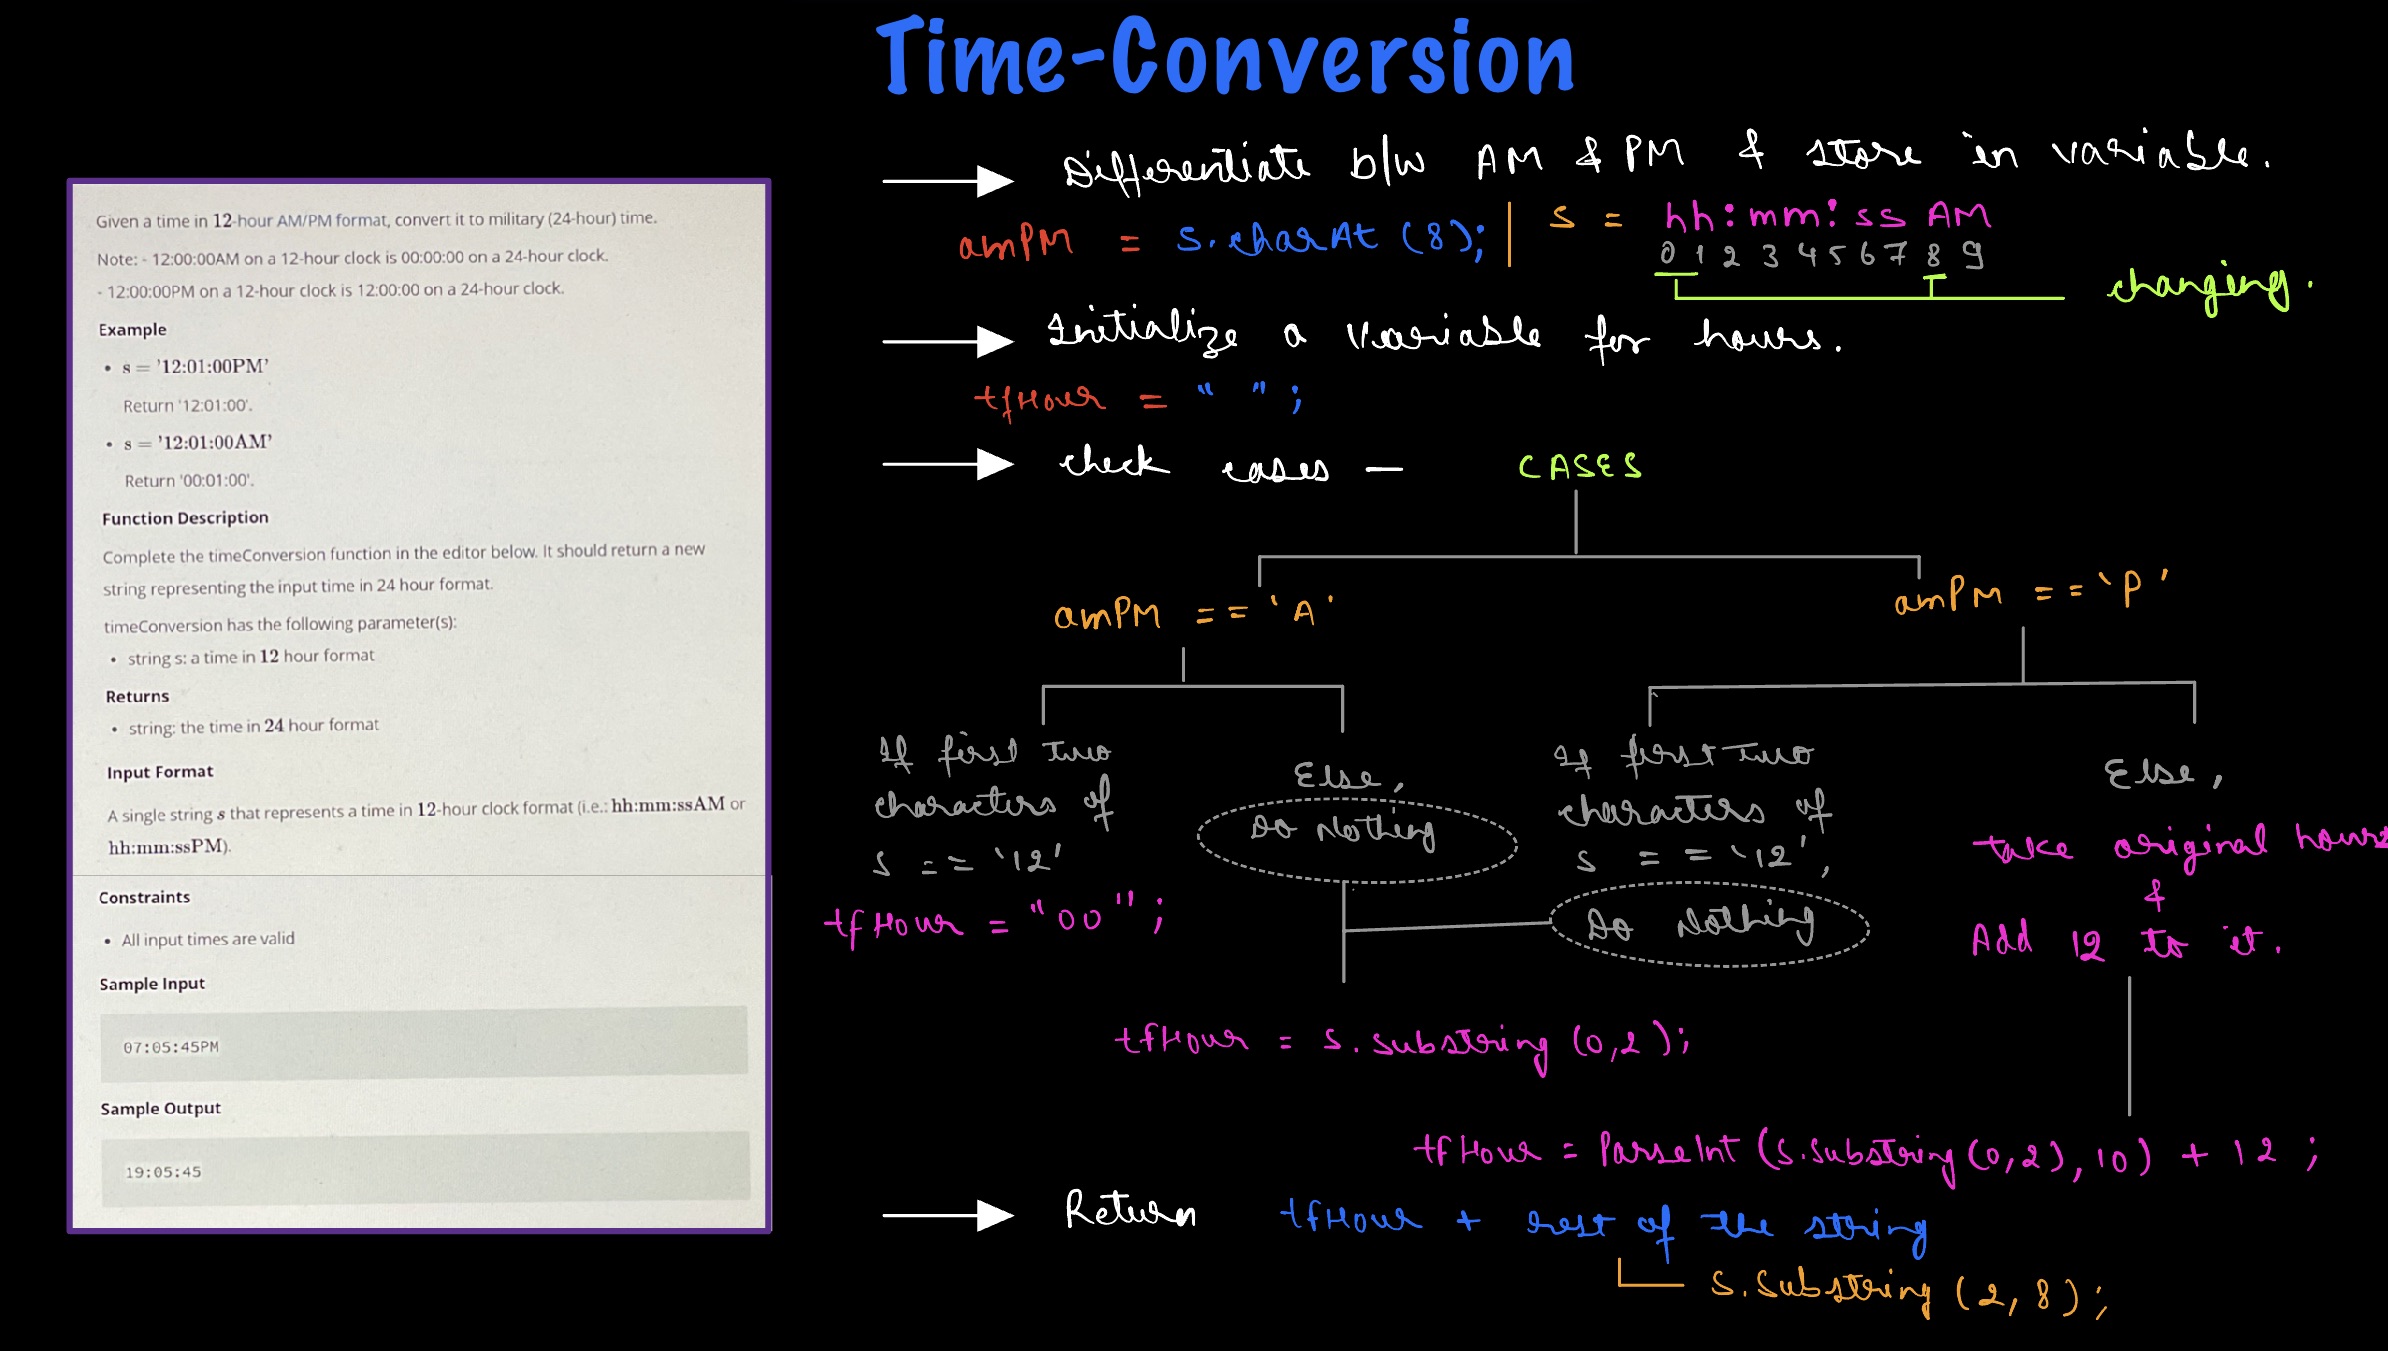 Time-Conversion
Given a time in 12-hour AM/PM format, convert it to military (24-hour) time.
Note: - 12:00:00AM on a 12-hour clock is 00:00:00 on a 24-hour clock.
- 12:00:00PM on a 12-hour clock is 12:00:00 on a 24-hour clock.
Example
• s = '12:01:00PM'
Return '12:01:00'.
• s = '12:01:00AM'
Return '00:01:00'.
Function Description
Complete the timeConversion function in the editor below. It should return a new
string representing the input time in 24 hour format.
timeConversion has the following parameter(s):
• string s: a time in 12 hour format
Returns
• string: the time in 24 hour format
Input Format
A single string s that represents a time in 12-hour clock format (i.e.: hh:mm:ssAM or
hh:mm:ssPM).
Constraints
• All input times are valid
Sample Input
07:05:45PM
Sample Output
19:05:45
Differentiate b/w AM & PM & store in variable.
amPM = s.charAt(8); | s = hh:mm:ss AM
0 1 2 3 4 5 6 7 8 9
changing.
Initialize a variable for hours.
tfHour = " ";
check cases — CASES
amPM == 'A'
amPM == 'P'
If first two
characters of
s == '12'
tfHour = "00";
Else,
Do Nothing
If first two
characters of
s == '12',
Do Nothing
Else,
take original hours
&
Add 12 to it.
tfHour = s.substring(0,2);
tfHour = ParseInt(s.substring(0,2),10) + 12;
Return tfHour + rest of the string
s.substring(2,8);